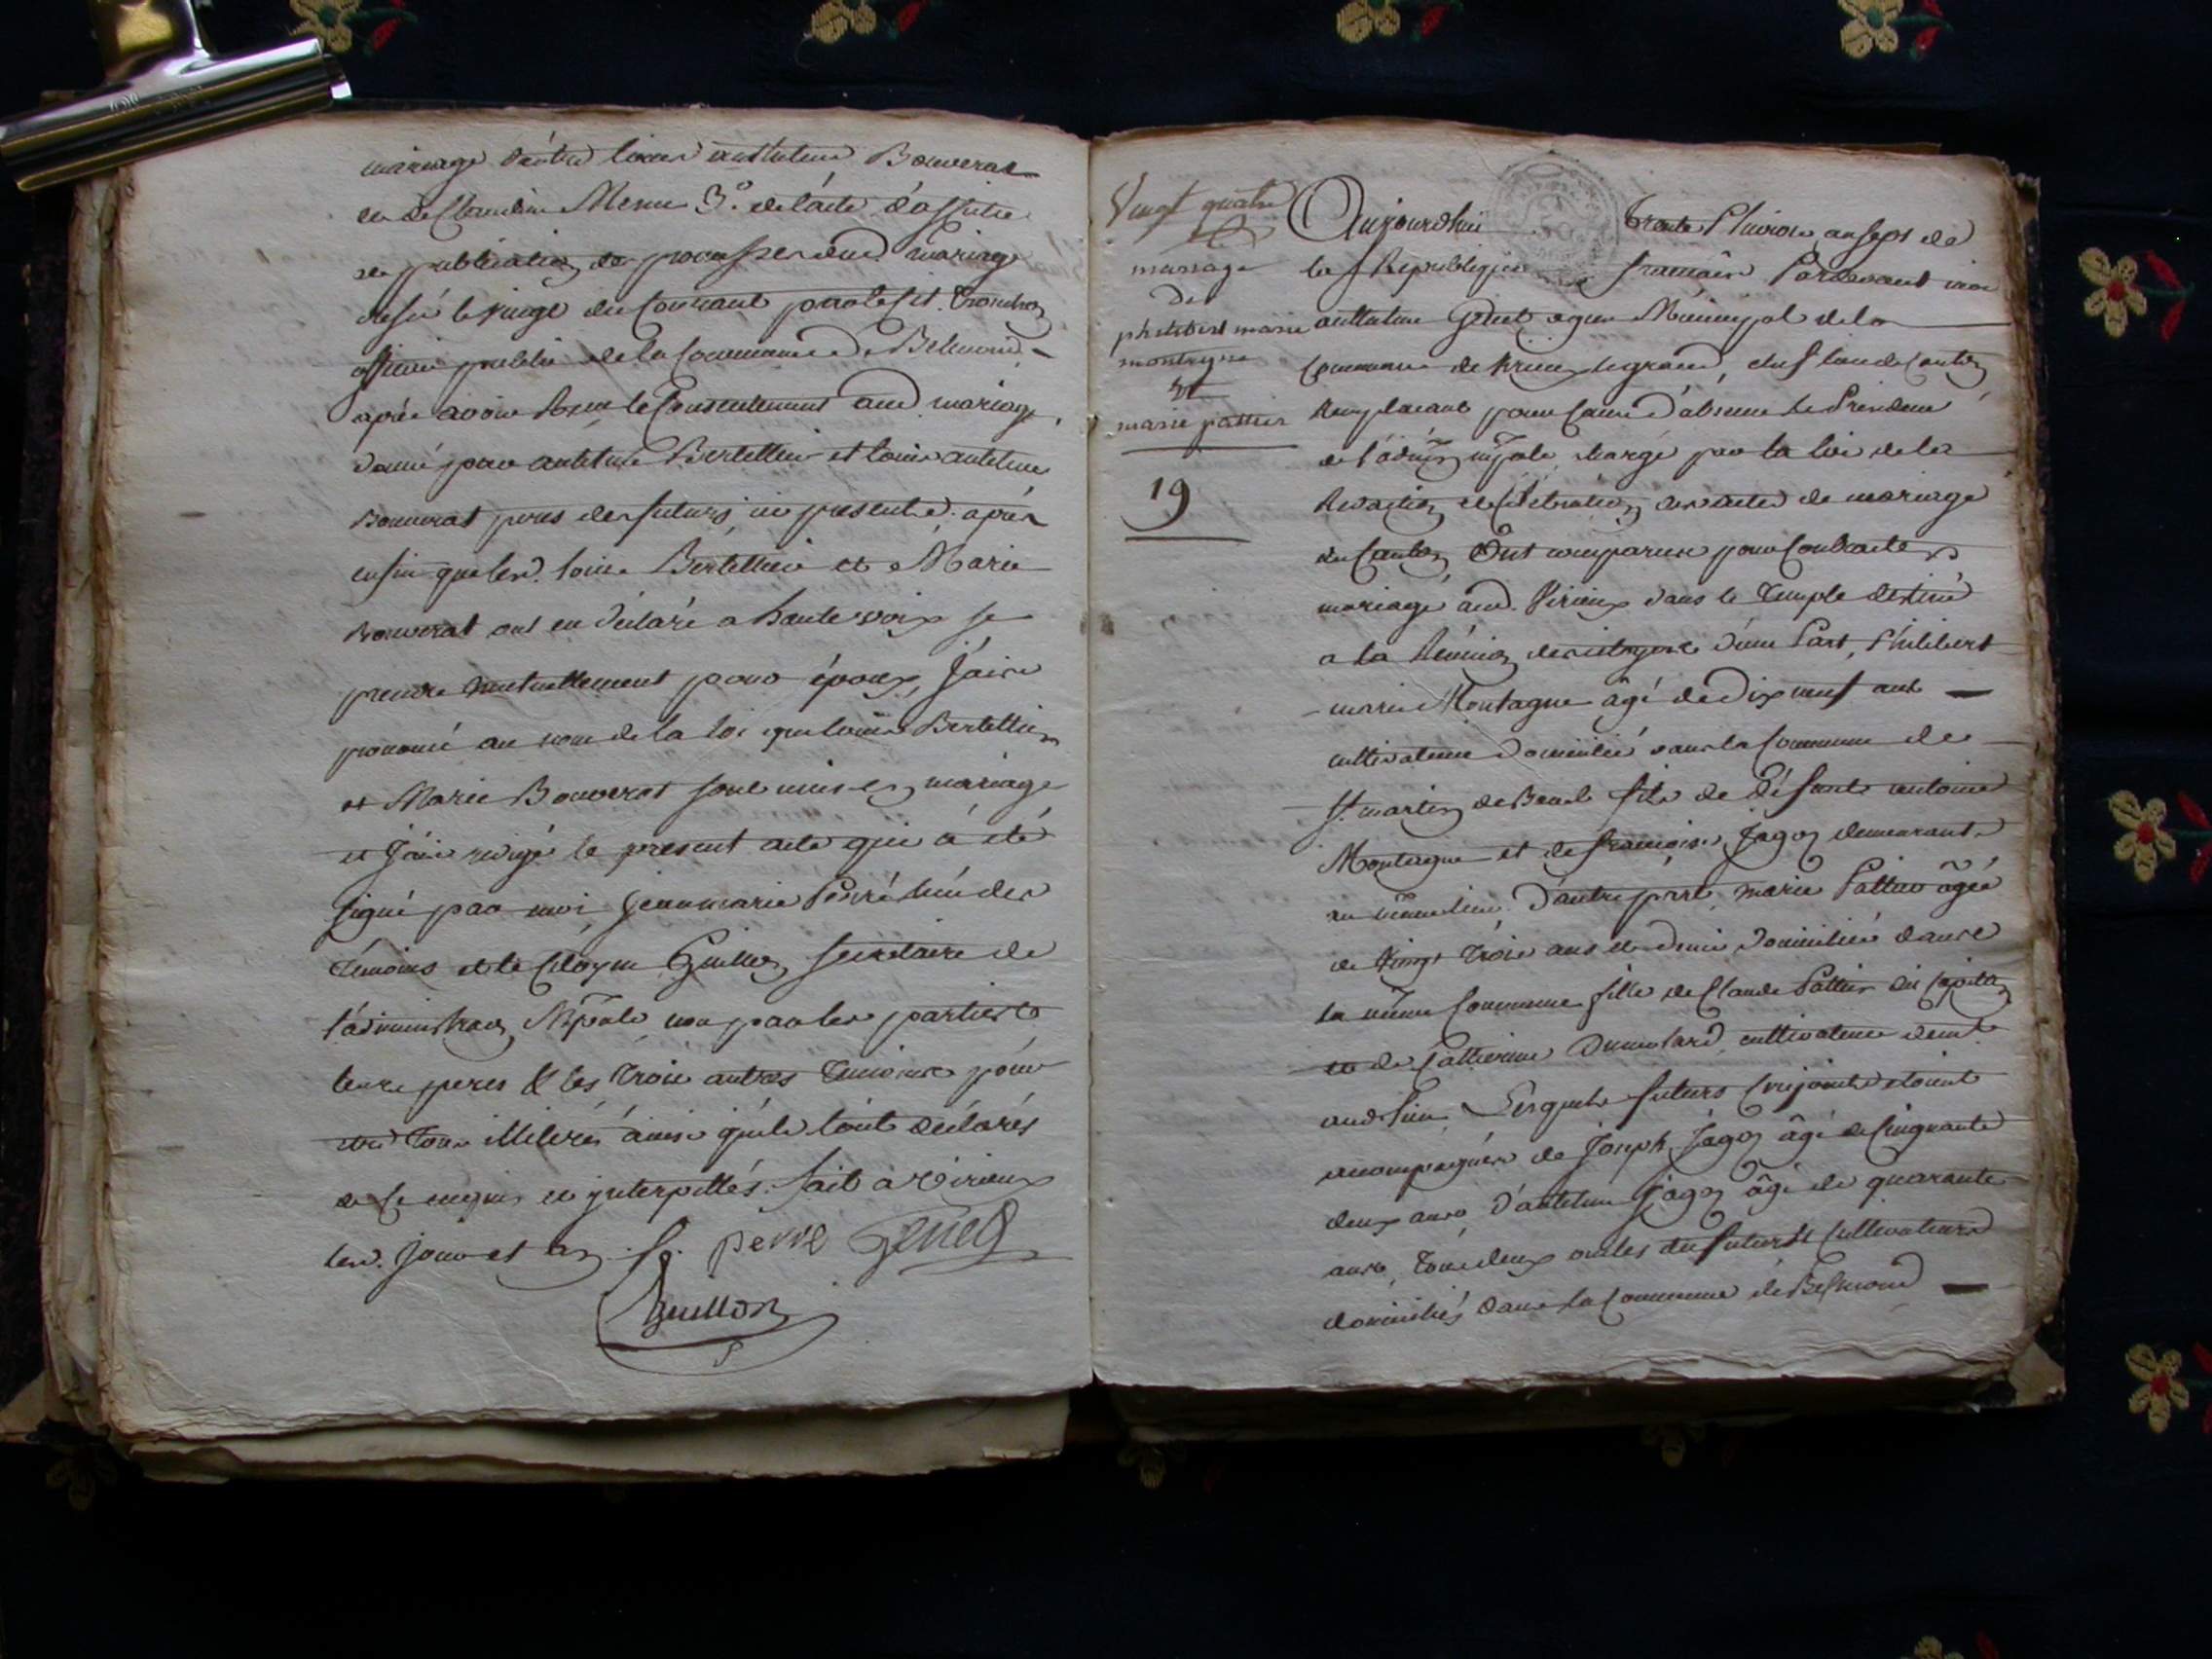 mariage d'entre louis anthelme Bouverat
et de Claudine Menu 3.º de l'acte d'affiche
et publication de promesses dud. mariage
du courant par le cit.
officier public de la commune de Belmond
après avoir reçu le consentement aud. mariage
donné par antelme Bertellier et louis antelme
Bouverat peres des futurs ici presents. après
enfin que lesd. louis Bertellier et Marie
Bouverat ont eu déclaré a haute voix se
prendre mutuellement pour époux, J'ai
prononcé au nom de la loi que louis Bertellier
et Marie Bouverat sont unis en mariage
et J'ai redigé le present acte qui a été
signé par moi, Jeanmarie Perré l'un des
témoins et le citoyen Guillon secretaire de
l'administraon Mpale non par les parties
leurs peres & les trois autres temoins pour
être tous illiterés ainsi qu'ils l'ont déclarés
de ce enquis et ynterpellés. fait a virieux
lesd. jour et an perré Genet
Guillon
Vingt quatre
mariage
de
philibert marie
montagne
Et
marie pattier
19
Aujourdhui trente Pluviose an sept de
la Republique francaise Pardevant moi
anthelme Genet agent Municipal de la
commune de virieu legrand, chef lieu de canton
remplacant pour cause d'absence le President
de l'admon mpale chargé par la loi de la
redaction et celebration des actes de mariage
du canton Ont comparus pour contracter
mariage aud. Virieux dans le temple destiné
a la Réunion des citoyens d'une Part, Philibert
marie Montagne âgé de dix neuf ans
cultivateur domicilié dans la commune de
St. martin de Bavel fils de défunts antoine
Montagne et de francoise Jagoz demeurant
au même lieu. D'autre part, marie Pattier âgée
de vingt trois ans et demi domiciliée dans
la même commune fille de Claude Pattier
et de Catherine Dumolard, cultivateur demt.
aud. lieu. Lesquels futurs conjoints etoient
accompagnés de Joseph Jagoz âgé de cinquante
deux ans, d'antelme Jagoz âgé de quarante
ans, tous deux oncles du futur & cultivateurs
domiciliés dans la commune de Belmond